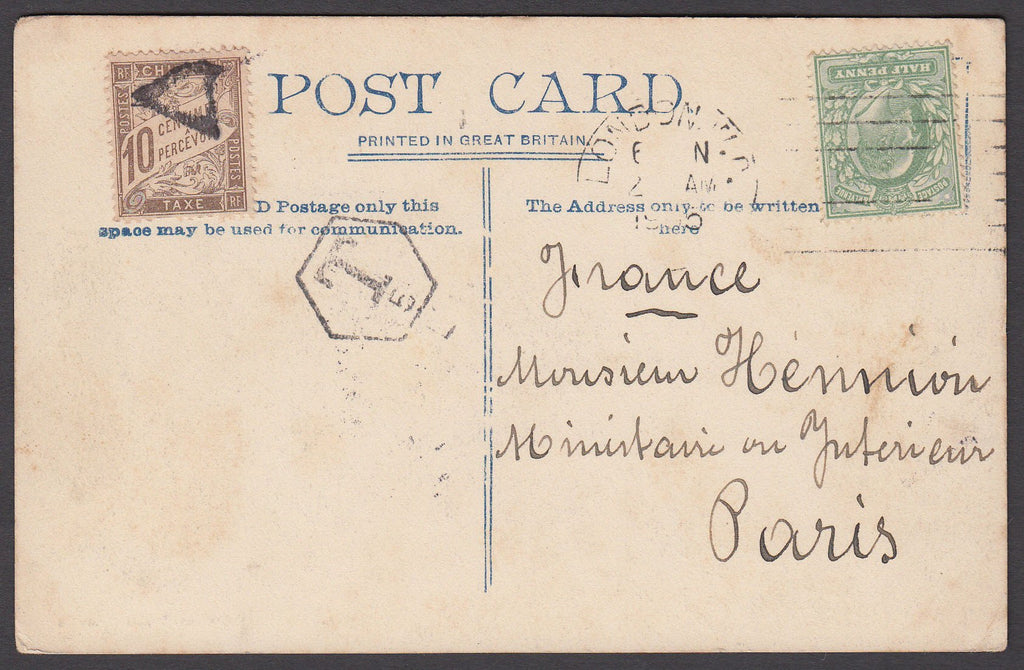 POST CARD
PRINTED IN GREAT BRITAIN
RF CHI RF
POSTES
10 CENTIMES
PERCEVOIR
POSTES
TAXE RF
HALF PENNY
POSTAGE
LONDON
6 N
2 AM
19 5
D Postage only this
space may be used for communication.
The Address only to be written
here
T
France
Monsieur Hénnion
Ministaire ou Interieur
Paris